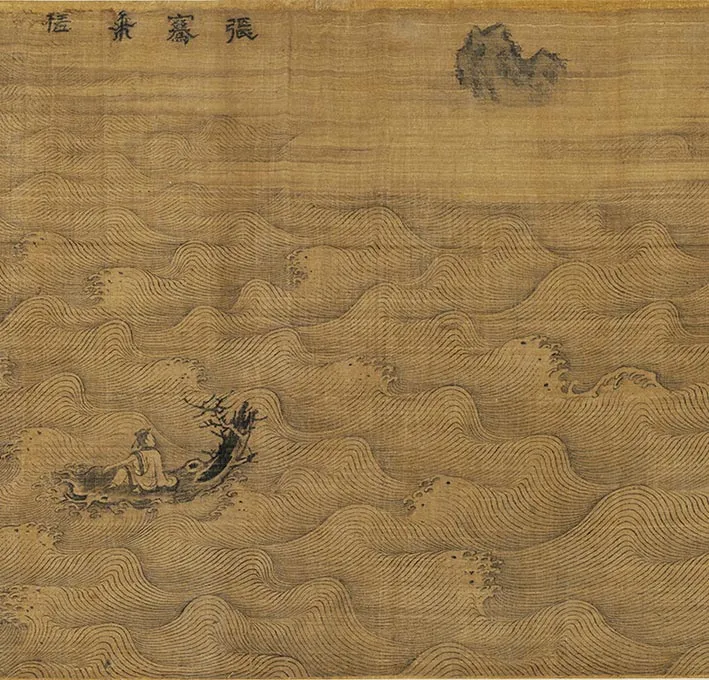 張騫乘槎